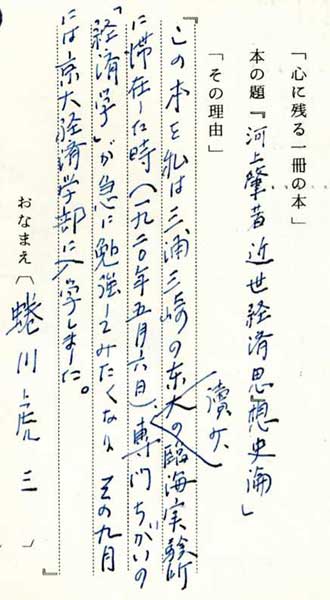 「心に残る一冊の本」
本の題『河上肇著 近世経済思想史論』
「その理由」
『この本を私は三浦三崎の東大の臨海実験所
に滞在した時(一九二〇年五月六日)、読んで専門ちがいの
「経済学」が急に勉強してみたくなり その九月
には京大経済学部に入学しました。
』
おなまえ〔 蜷川虎三 〕